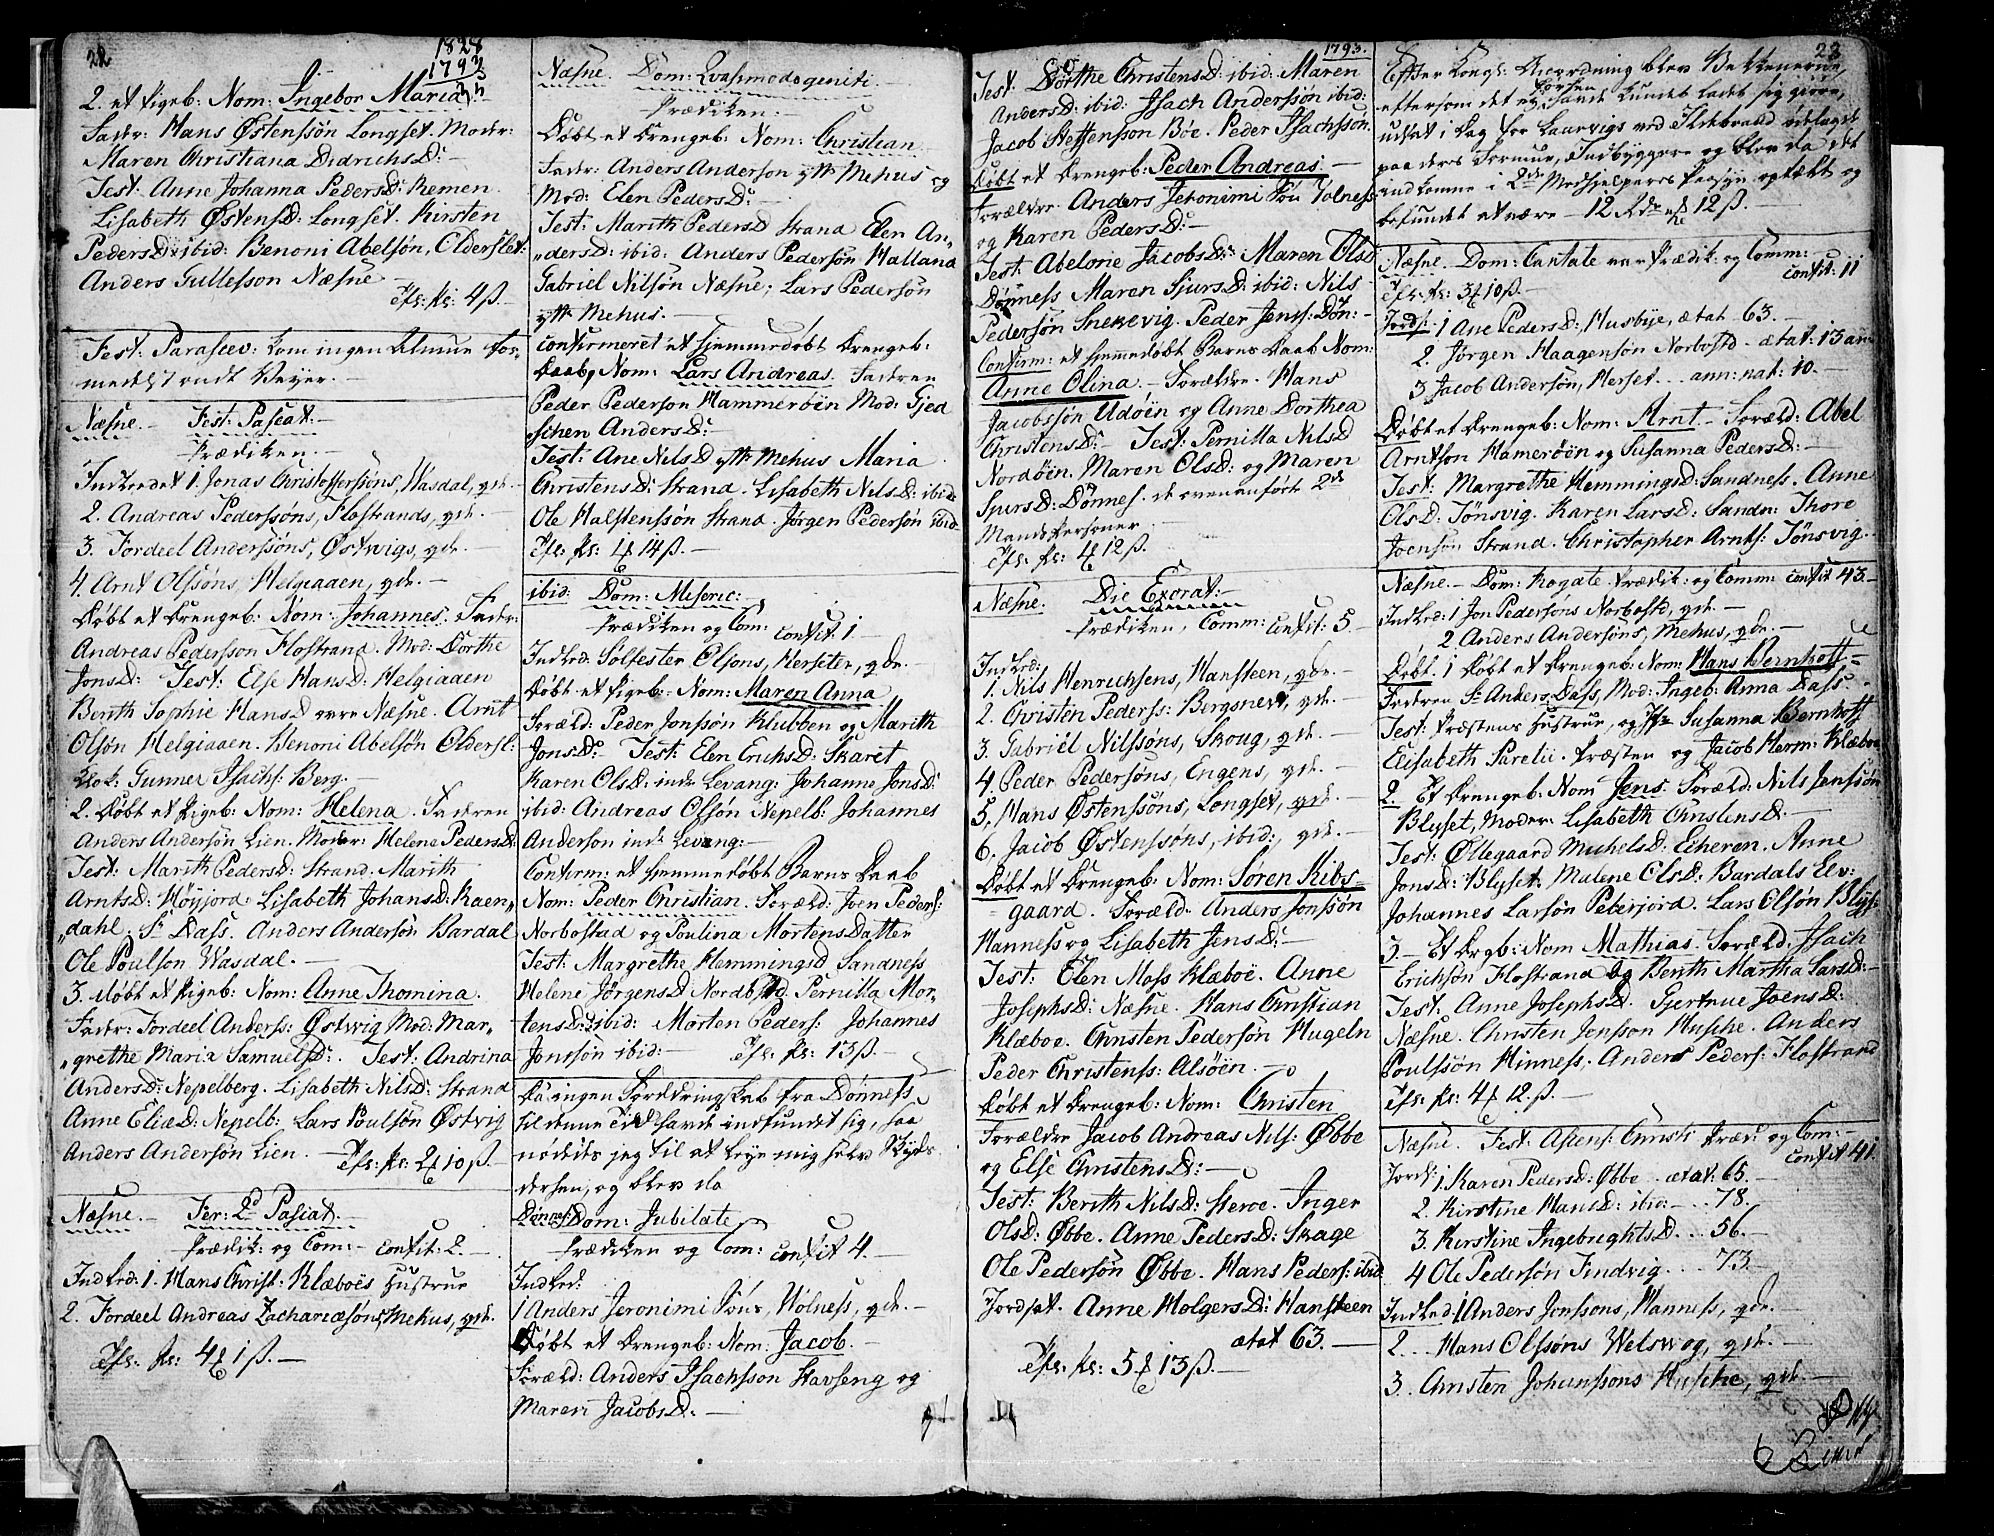 22
1828
1793
2. et Pigeb: Nom: Ingebor Maria
Fadr: Hans Østenssön Longset. Modr:
Maren Christiana DidrichsD:
Test: Anne Johanna PedersD: Remen
Lisabeth ØstensD: Longset. Kirsten
PedersD: ibid: Benoni Abelsön, Olderslet:
Anders Gullesson Næsne
Tfl: Ps: 4ß.
Fest: Parascev: kom ingen Almue for-
medelst ondt Veyer.
Næsne. Fest: Pascat:
Prædiken.
Indledet 1. Jonas Christoffersöns, Wasdal, qde.
2. Andreas Pederssöns, Flostrands, qde.
3. Fordeel Anderssöns, Østwigs, qde.
4. Arnt Olssöns, Helgiaaen, qde.
Døbt et Drengeb: Nom: Johannes. Fadr:
Andreas Pedersson Flostrand. Mod: Dorthe
JonsD: Test: Else HansD: Helgiaaen
Berith Sophie HansD øvre Næsne. Arnt
Olsön Helgiaaen. Benoni Abelsön Oldersl:
Klok: Gunner Isachs: Berg.
2. Døbt et Pigeb: Nom: Helena. Faderen
Anders Andersön Lien. Moder: Helena PedersD:
Test: Marith PedersD: Strand. Marith
ArntsD: Høyjord. Lisabeth JohansD: Raen„
„dahl. Sr Dass. Anders Andersön Bardal
Ole Poulson Wasdal.
3. Døbt et Pigeb: Nom: Anne Thomina.
Fadr: Fordeel Anderss: Østwig Mod: Mar„
„grethe Maria SamuelsD: Test: Andrina
AndersD: Nepelberg. Lisabeth NilsD: Strand
Anne EliæD: Nepelb: Lars Poulsön Østvig
Anders Andersön Lien. Tfl: Ps: 2 10ß.
Næsne. Fer: 2d Pasiat.
Prædik: og Com: Confit: 2.
Indled: 1. Hans Christ: Klæboes Hustrue
2. Fordeel Andreas Zachariæsöns, Mehus, qde.
Tfl: Ps: 4 1ß.
Næsne. Dom: Qvasimodogeniti.
Prædiken.
Døbt et Drengeb: Nom: Christian
Fadr: Anders Anderson ytr Mehus og
Mod: Elen PedersD:
Test: Marith PedersD Strand Elen An„
„dersD: ibid: Anders Pedersön Halland
Gabriel Nilsön Næsne; Lars Pedersön
ytr Mehus.
Confirmeret et hjemmedøbt Drengeb:
Daab, Nom: Lars Andreas. Fadren
Peder Pederson Hammerøen Mod: Gjed
schen AndersD:
Test: Ane NilsD ytr Mehus Maria
ChristensD: Strand. Lisabeth NilsD: ibid:
Ole Halstenssön Strand. Jørgen Pedersön ibid.
Tfl: Ps: 1 14ß.
ibid: Dom: Miseric:
Prædiken og Com: Confit: 1
Indled: Sølfester Olsons, Herseter, qde.
Døbt et Pigeb: Nom: Maren Anna
Foræld: Peder Jonsson Klubben og Marith
JonsD: Test: Elen EricksD: Skaret
Karen OlsD: indr Levang: Johanne JonsD:
ibid: Andreas Olsön Nepelb: Johannes
Anderson indr Levang:
Confirm: et hjemmedøbt Barns Daab
Nom: Peder Christian. Foræld: Joen Peders:
Norbostad og Poulina MortensDatter
Test: Margrethe Hemmingsd Sandness
Helene JørgensD Nordbostad. Pernilla Mor„
tensD: ibid: Morten Peders: Johannes
Jonssön ibid: Tfl: Ps: 13ß.
Da ingen Fordringskab fra Dønness
til denne Tid havde indfundet sig, saa
nødedes jeg til at leye mig selv Skyds
derhen, og blev da
Dønnes: Dom: Jubilate
Prædiken og Com: Confit 4.
Indled:
1 Anders Jeronimi Söns, Wolness, qde.
Døbt et Drengeb: Nom: Jacob.
Foræld: Anders Isachsson Havseng og
Maren JacobsD:
1793.
Test Dorthe ChristensD: ibid: Maren
AndersD: ibid: Isach Anderssön ibid:
Jacob Steffenson Böe. Peder Isachsson.
Døbt et Drengeb: Peder Andreas
Forældre Anders Jeronimi Sön Volness
og Karen PedersD:
Test: Abelone JacobsD: Maren OlsD
Dønness Maren SjursD: ibid: Nils
Pedersön Snekevig. Peder Jens: Dön:
Confirm: et hjemmedøbt Barns Daab Nom:
Anne Olina. Forældre. Hans
Jacobssön Udöen og Anne Dorthea
ChristensD: Test: Pernilla NilsD
Nordöen. Maren OlsD: og Maren
SjursD: Dønnes. de ovenanførte 2de
Mandspersoner
Tfl: Ps: 4 12ß.
Næsne. Die Exorat:
Prædiken, Comm: Confit: 5.
Indled:
1. Nils Henrichsens, Hansteen, qde.
2. Christen Pederss: Bergsnev, qde.
3. Gabriel Nilssöns, Skoug, qde.
4 Peder Pedersöns, Engens, qde.
5. Hans Østenssöns, Longset, qde.
6. Jacob Østenssöns, ibid:, qde.
Døbt et Drengeb: Nom: Søren Kibs-
gaard. Foræld: Anders Jonssön
Hanness og Lisabeth JensD:
Test: Elen Moss Klæboe. Anne
JosephsD: Næsne. Hans Christian
Klæboe. Christen Pedersön Hugeln
Peder Christenss: Alsöen.
Døbt et Drengeb: Nom: Christen
Forældre Jacob Andreas Nils: Øbbe
og Else ChristensD:
Test: Berith NilsD: Herøe. Inger
OlsD: Øbbe. Anne PedersD: Skage
Ole Pedersön Øbbe. Hans Peders: ibid
Jordsat. Anne HolgersD: Hansteen
ætat 63.
Tfl: Ps: 5 13ß.
22
Efter Kongl: Anordning blev Bekkenerne,
eftersom det ey forhen havde kundet ladet sig giøre,
udsat i Dag for Laurvigs ved Ildebrand ødelagt
paa deres Formue, Indbyggere og blev da det
indkomne i 2de Medhjelperes Paasyn optælt og
befundet at være 12 Rdr 12ß.
Næsne. Dom: Cantate var Prædik: og Comm:
Confit: 11
Tfl: Ps: 3 10ß.
Jords: 1 Ane PedersD:, Husbye, ætat 63.
2. Jørgen Haagensön Norbostd ætat: 13 an:
3 Jacob Andersön, Herset ... ann: nat: 10.
Døbt et Drengeb: Nom: Arnt. Foræld: Abel
Arntson Hamerøen og Susanna PedersD:
Test: Margrethe Hemmingsd: Sandness. Anne
OlsD: Tönsvig. Karen LarsD: Sandn: Thore
Joensön Strand. Christopher Arnts: Tönsvig.
Næsne. Dom: Rogate. Prædik: og Comm: Confit 43.
Indled: 1 Jon Pedersöns Norbostd, qde.
2. Anders Andersöns, Mehus, qde.
Døbt. 1 Døbt et Drengeb: Nom: Hans Bernhoft
Fadren Sr Anders Dass, Mod: Ingeb: Anna Dass
Test: Præstens Hustrue, og Jfr Susanna Bernhoft
Elisabeth Parelii. Præsten og Jacob Herm: Klæboe
2. Et Drengeb: Nom Jens. Foræld: Nils Jenssön
Blyset, Moder: Lisabeth ChristensD:
Test: Øllegaard MichelsD: Echeren. Anne
JonsD: Blyset. Malene OlsD: Bardals Elv:
Johannes Larsön Peterjord. Lars Olsön Blys:
3. Et Drgb: Nom Mathias. Foræld: Isach
Ericksön Flostrand og Berith Martha LarsD:
Test: Anne JosephsD: Gjertrue JoensD:
Næsne. Christen Jonsson Husche. Anders
Poulssön Hinness. Anders Peders: Flostrand
Tfl: Ps: 4 12ß.
Næsne. Fest: Asens: Christi Præd: og Com:
Confit 41.
Jords: 1 Karen PedersD: Øbbe. ætat: 65.
2. Kirstine HansD: ibid: .. 78.
3. Kirstine IngebrigtsD ... 56.
4 Ole Pedersön Findvig .... 73.
Indled: 1 Anders Jonssons, Hanness, qde.
2 .. Hans Olssöns Welswog, qde.
3. Christen Johanssons Husche, qde.